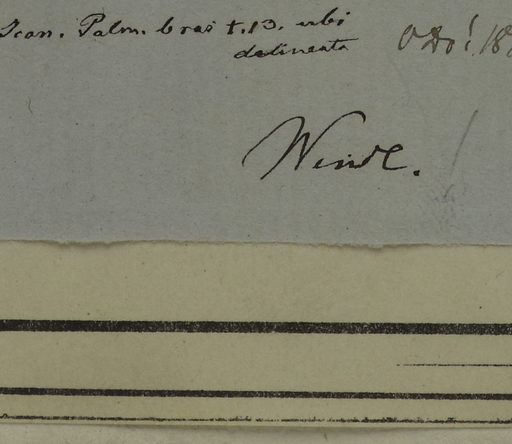 Icon. Palm. bras t. 13. ubi
delineata
Wendl.